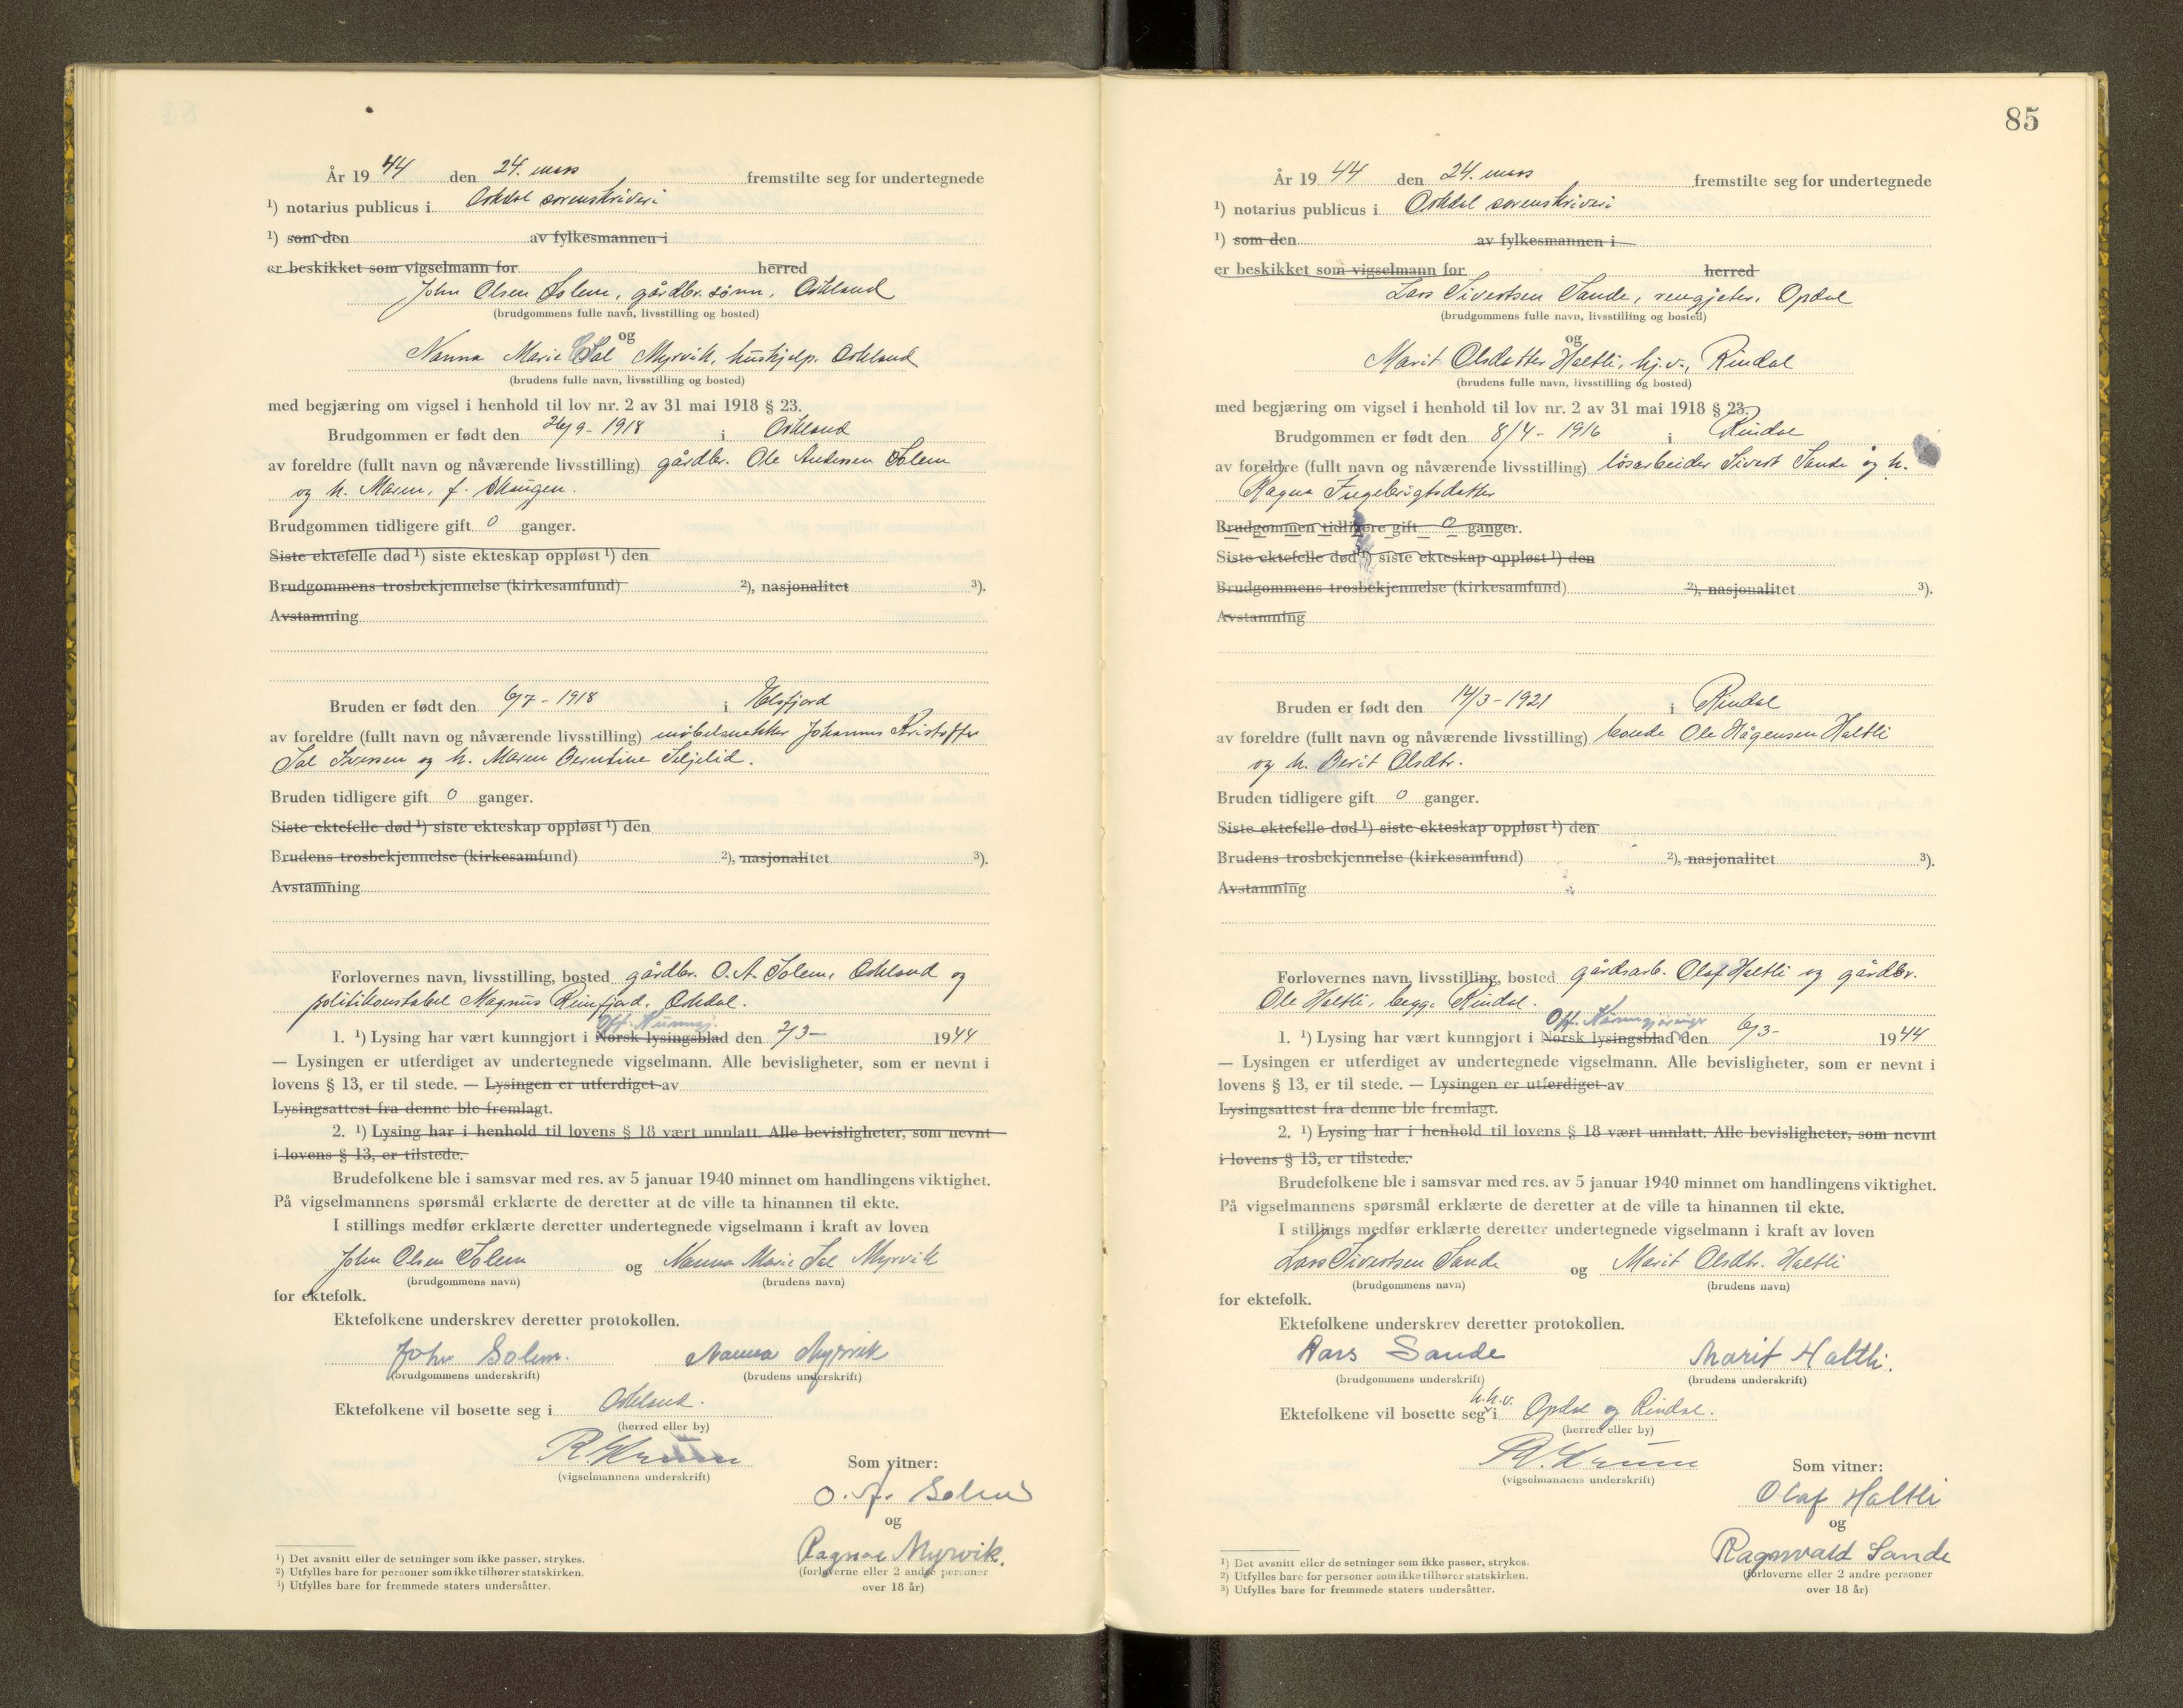 År 1944 den 24. mars fremstilte seg for undertegnede
¹) notarius publicus i Orkdal sorenskriveri
¹) som den av fylkesmannen i
er beskikket som vigselmann for herred
John Olsen Solem, gårdbr. sønn, Orkland
(brudgommens fulle navn, livsstilling og bosted)
og
Nanna Marie Sal Myrvik, hushjelp. Orkland
(brudens fulle navn, livsstilling og bosted)
med begjæring om vigsel i henhold til lov nr. 2 av 31 mai 1918 § 23.
Brudgommen er født den 26/9 - 1918 i Orkland
av foreldre (fullt navn og nåværende livsstilling) gårdbr. Ole Andersen Solem
og h. Maren, f. Skaugen.
Brudgommen tidligere gift 0 ganger.
Siste ektefelle død ¹) siste ekteskap oppløst ¹) den
Brudgommens trosbekjennelse (kirkesamfund) ²), nasjonalitet ³).
Avstamning
Bruden er født den 6/7 - 1918 i Elsfjord
av foreldre (fullt navn og nåværende livsstilling) møbelsnekker Johannes Kristoffer
Sal Iversen og h. Maren Berntine Seljelid.
Bruden tidligere gift 0 ganger.
Siste ektefelle død ¹) siste ekteskap oppløst ¹) den
Brudens trosbekjennelse (kirkesamfund) ²), nasjonalitet ³).
Avstamning
Forlovernes navn, livsstilling, bosted gårdbr. O. A. Solem, Orkland og
politikonstabel Magnus Reinfjord. Orkdal.
Off. Kunngj.
1. ¹) Lysing har vært kunngjort i Norsk lysingsblad den 2/3 - 1944
— Lysingen er utferdiget av undertegnede vigselmann. Alle bevisligheter, som er nevnt i
lovens § 13, er til stede. — Lysingen er utferdiget av
Lysingsattest fra denne ble fremlagt.
2. ¹) Lysing har i henhold til lovens § 18 vært unnlatt. Alle bevisligheter, som nevnt
i lovens § 13, er tilstede.
Brudefolkene ble i samsvar med res. av 5 januar 1940 minnet om handlingens viktighet.
På vigselmannens spørsmål erklærte de deretter at de ville ta hinannen til ekte.
I stillings medfør erklærte deretter undertegnede vigselmann i kraft av loven
John Olsen Solem og Nanna Marie Sal Myrvik
(brudgommens navn) (brudens navn)
for ektefolk.
Ektefolkene underskrev deretter protokollen.
John Solem. Nanna Myrvik
(brudgommens underskrift) (brudens underskrift)
Ektefolkene vil bosette seg i Orkland.
(herred eller by)
(vigselmannens underskrift)
Som vitner:
O. A. Solem
og
Ragnar Myrvik.
(forloverne eller 2 andre personer
over 18 år)
¹) Det avsnitt eller de setninger som ikke passer, strykes.
²) Utfylles bare for personer som ikke tilhører statskirken.
³) Utfylles bare for fremmede staters undersåtter.
85
År 1944 den 24. mars fremstilte seg for undertegnede
¹) notarius publicus i Orkdal sorenskriveri
¹) som den av fylkesmannen i
er beskikket som vigselmann for herred
Lars Sivertsen Sande, rengjeter, Opdal
(brudgommens fulle navn, livsstilling og bosted)
og
Marit Olsdatter Haltli, hj.v., Rindal
(brudens fulle navn, livsstilling og bosted)
med begjæring om vigsel i henhold til lov nr. 2 av 31 mai 1918 § 23.
Brudgommen er født den 8/4 - 1916 i Rindal
av foreldre (fullt navn og nåværende livsstilling) løsarbeider Sivert Sande og h.
Ragna Ingebrigtsdatter
Brudgommen tidligere gift 0 ganger.
Siste ektefelle død ¹) siste ekteskap oppløst ¹) den
Brudgommens trosbekjennelse (kirkesamfund) ²), nasjonalitet ³).
Avstamning
Bruden er født den 14/3 - 1921 i Rindal
av foreldre (fullt navn og nåværende livsstilling) bonde Ole Hågensen Haltli
og h. Berit Olsdtr.
Bruden tidligere gift 0 ganger.
Siste ektefelle død ¹) siste ekteskap oppløst ¹) den
Brudens trosbekjennelse (kirkesamfund) ²), nasjonalitet ³).
Avstamning
Forlovernes navn, livsstilling, bosted gårdsarb. Olaf Haltli og gårdbr.
Ole Haltli, begge Rindal.
Off. Kunngjøringer
1. ¹) Lysing har vært kunngjort i Norsk lysingsblad den 6/3 - 1944
— Lysingen er utferdiget av undertegnede vigselmann. Alle bevisligheter, som er nevnt i
lovens § 13, er til stede. — Lysingen er utferdiget av
Lysingsattest fra denne ble fremlagt.
2. ¹) Lysing har i henhold til lovens § 18 vært unnlatt. Alle bevisligheter, som nevnt
i lovens § 13, er tilstede.
Brudefolkene ble i samsvar med res. av 5 januar 1940 minnet om handlingens viktighet.
På vigselmannens spørsmål erklærte de deretter at de ville ta hinannen til ekte.
I stillings medfør erklærte deretter undertegnede vigselmann i kraft av loven
Lars Sivertsen Sande og Marit Olsdtr. Haltli
(brudgommens navn) (brudens navn)
for ektefolk.
Ektefolkene underskrev deretter protokollen.
Lars Sande Marit Haltli.
(brudgommens underskrift) (brudens underskrift)
h.h.v.
Ektefolkene vil bosette seg i Opdal og Rindal.
(herred eller by)
(vigselmannens underskrift)
Som vitner:
Olaf Haltli
og
Ragnvald Sande
(forloverne eller 2 andre personer
over 18 år)
¹) Det avsnitt eller de setninger som ikke passer, strykes.
²) Utfylles bare for personer som ikke tilhører statskirken.
³) Utfylles bare for fremmede staters undersåtter.